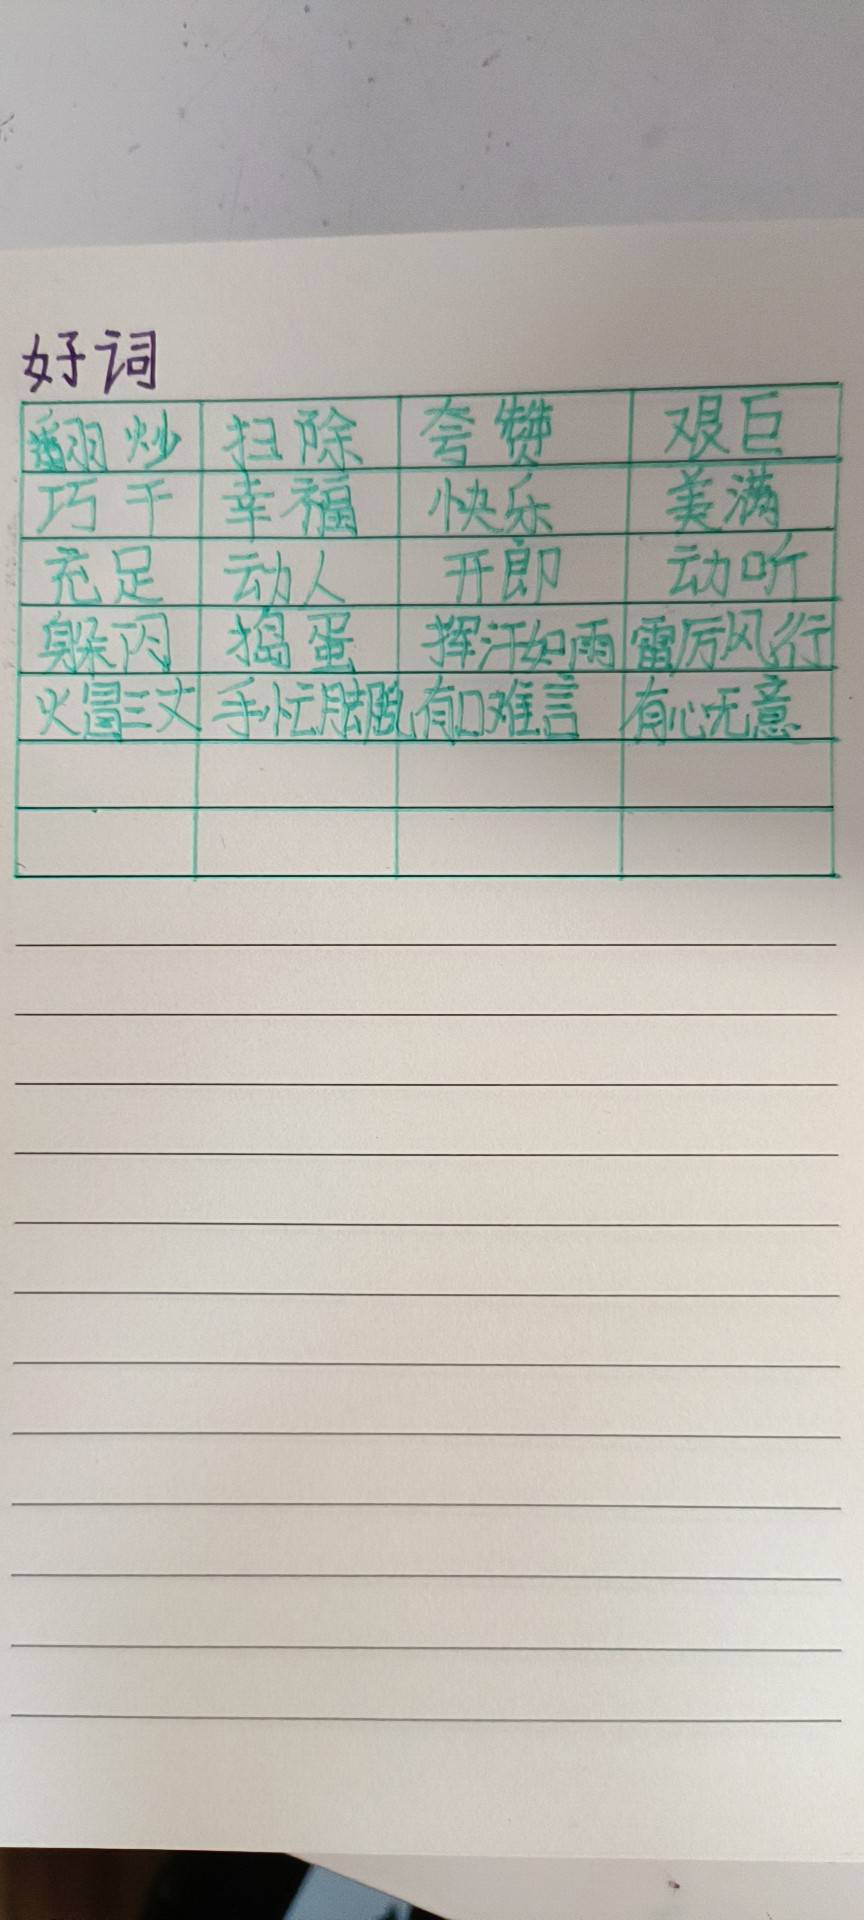 好词
翻炒 扫除 夸赞 艰巨
巧干 幸福 快乐 美满
充足 动人 开郎 动听
躲闪 捣蛋 挥汗如雨 雷厉风行
火冒三丈 手忙脚 有口难言 有心无意